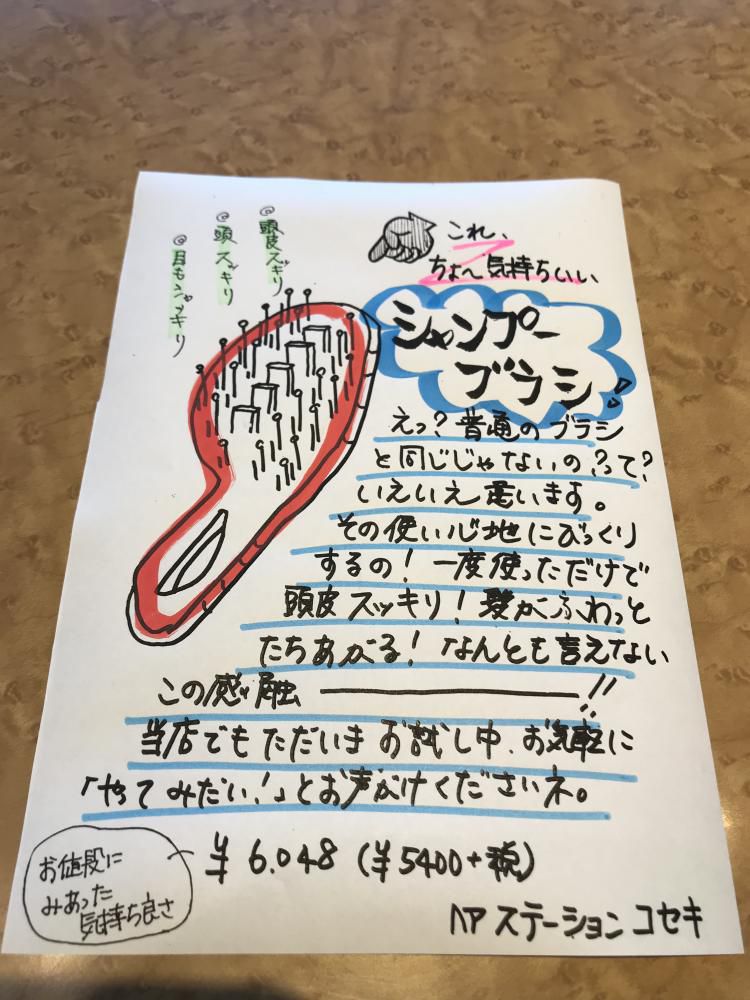 ◎頭皮スッキリ
◎頭スッキリ
◎目もパッキリ
これ、
ちょ〜気持ちいい
シャンプー
ブラシ!
えっ?普通のブラシ
と同じじゃないの?って?
いえいえ違います。
その使い心地にびっくり
するの!一度使っただけで
頭皮スッキリ!髪がふわっと
たちあがる!なんとも言えない
この感触――――!!
当店でもただいまお試し中、お気軽に
「やってみたい!」とお声がけくださいネ。
お値段に
みあった
気持ち良さ
¥6.048(¥5400+税)
ヘアステーションコセキ